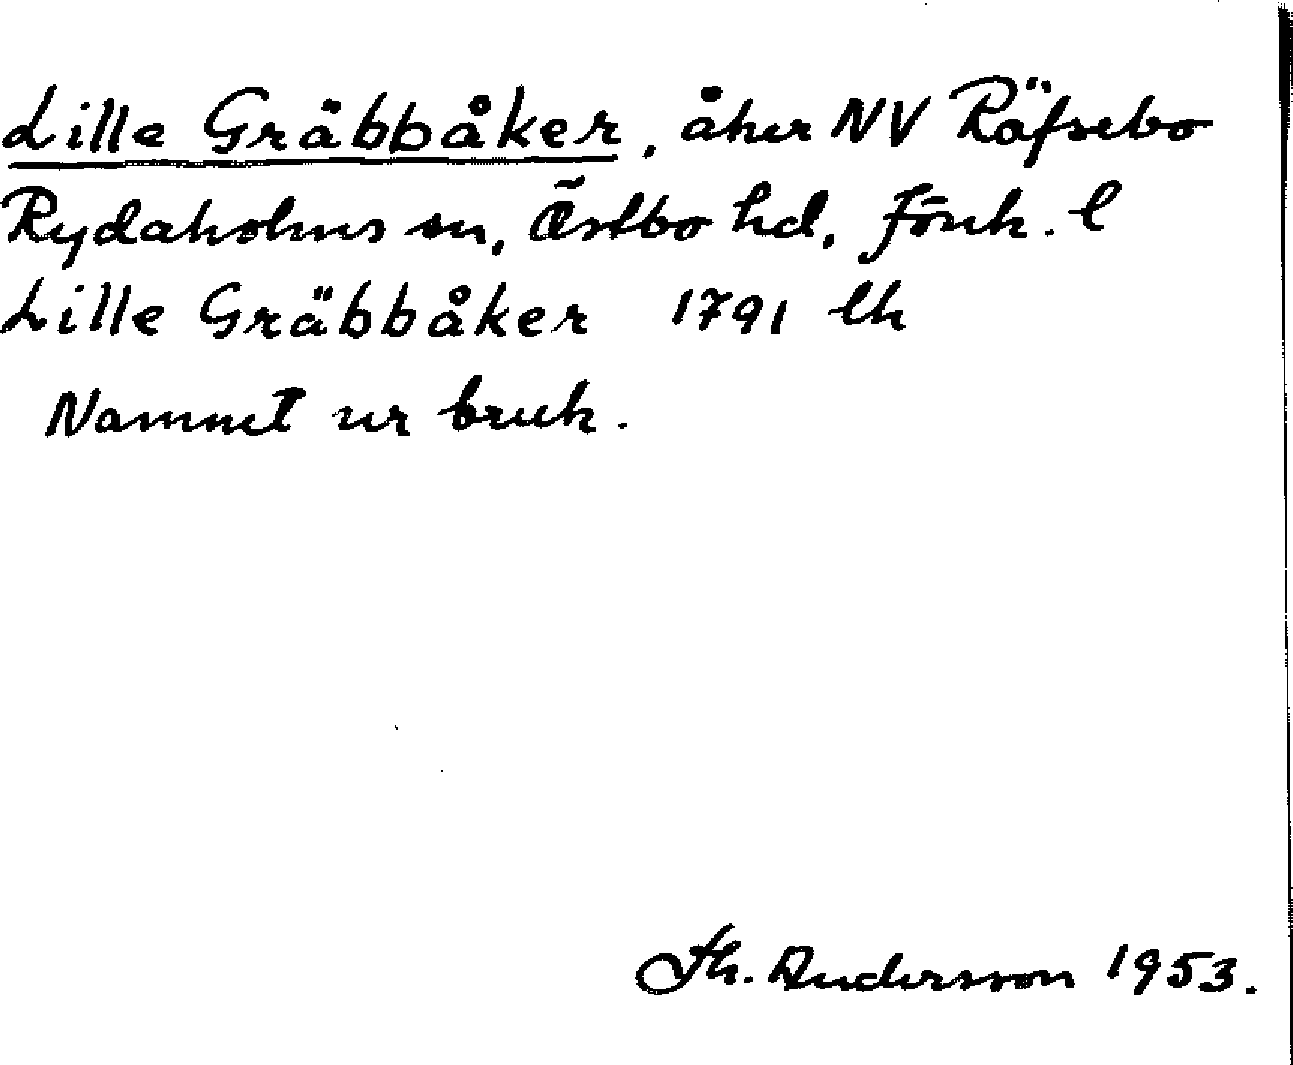 Lille Gräbbåker, åker NV Räfsebo
Rydaholms sn, Östbo hd, Jönk. l
Lille Gräbbåker 1791 lh
Namnet ur bruk.
Th. Andersson 1953.